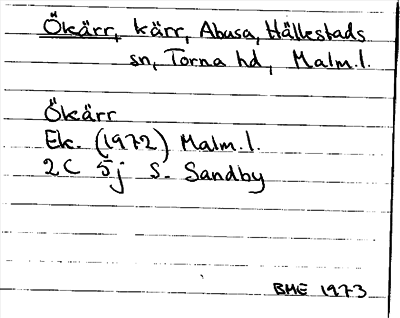 Ökärr, kärr, Abusa, Hällestads
sn, Torna hd, Malm.l.
Ökärr
Ek. (1972) Malm.l.
2C 5j S. Sandby
BME 1973